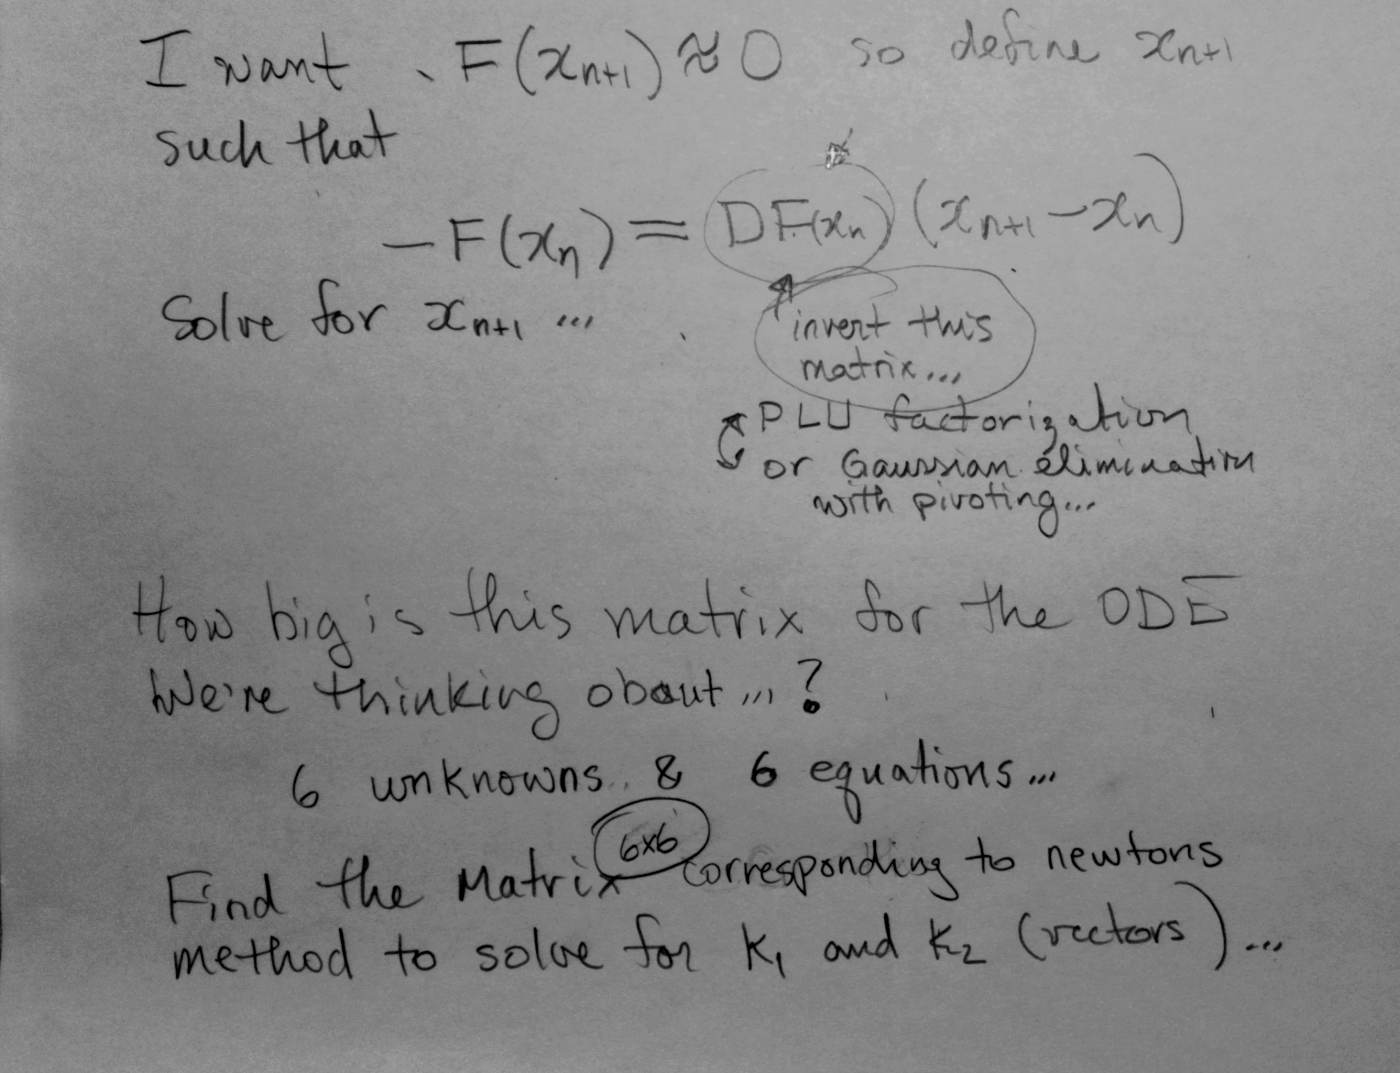 I want F(xₙ₊₁) ≈ 0 so define xₙ₊₁
such that
−F(xₙ) = DF(xₙ) (xₙ₊₁ − xₙ)
Solve for xₙ₊₁ ...
invert this
matrix...
PLU factorization
or Gaussian elimination
with pivoting...
How big is this matrix for the ODE
We're thinking about...?
6 unknowns.. & 6 equations...
Find the Matrix 6x6 corresponding to newtons
method to solve for K₁ and K₂ (vectors)...